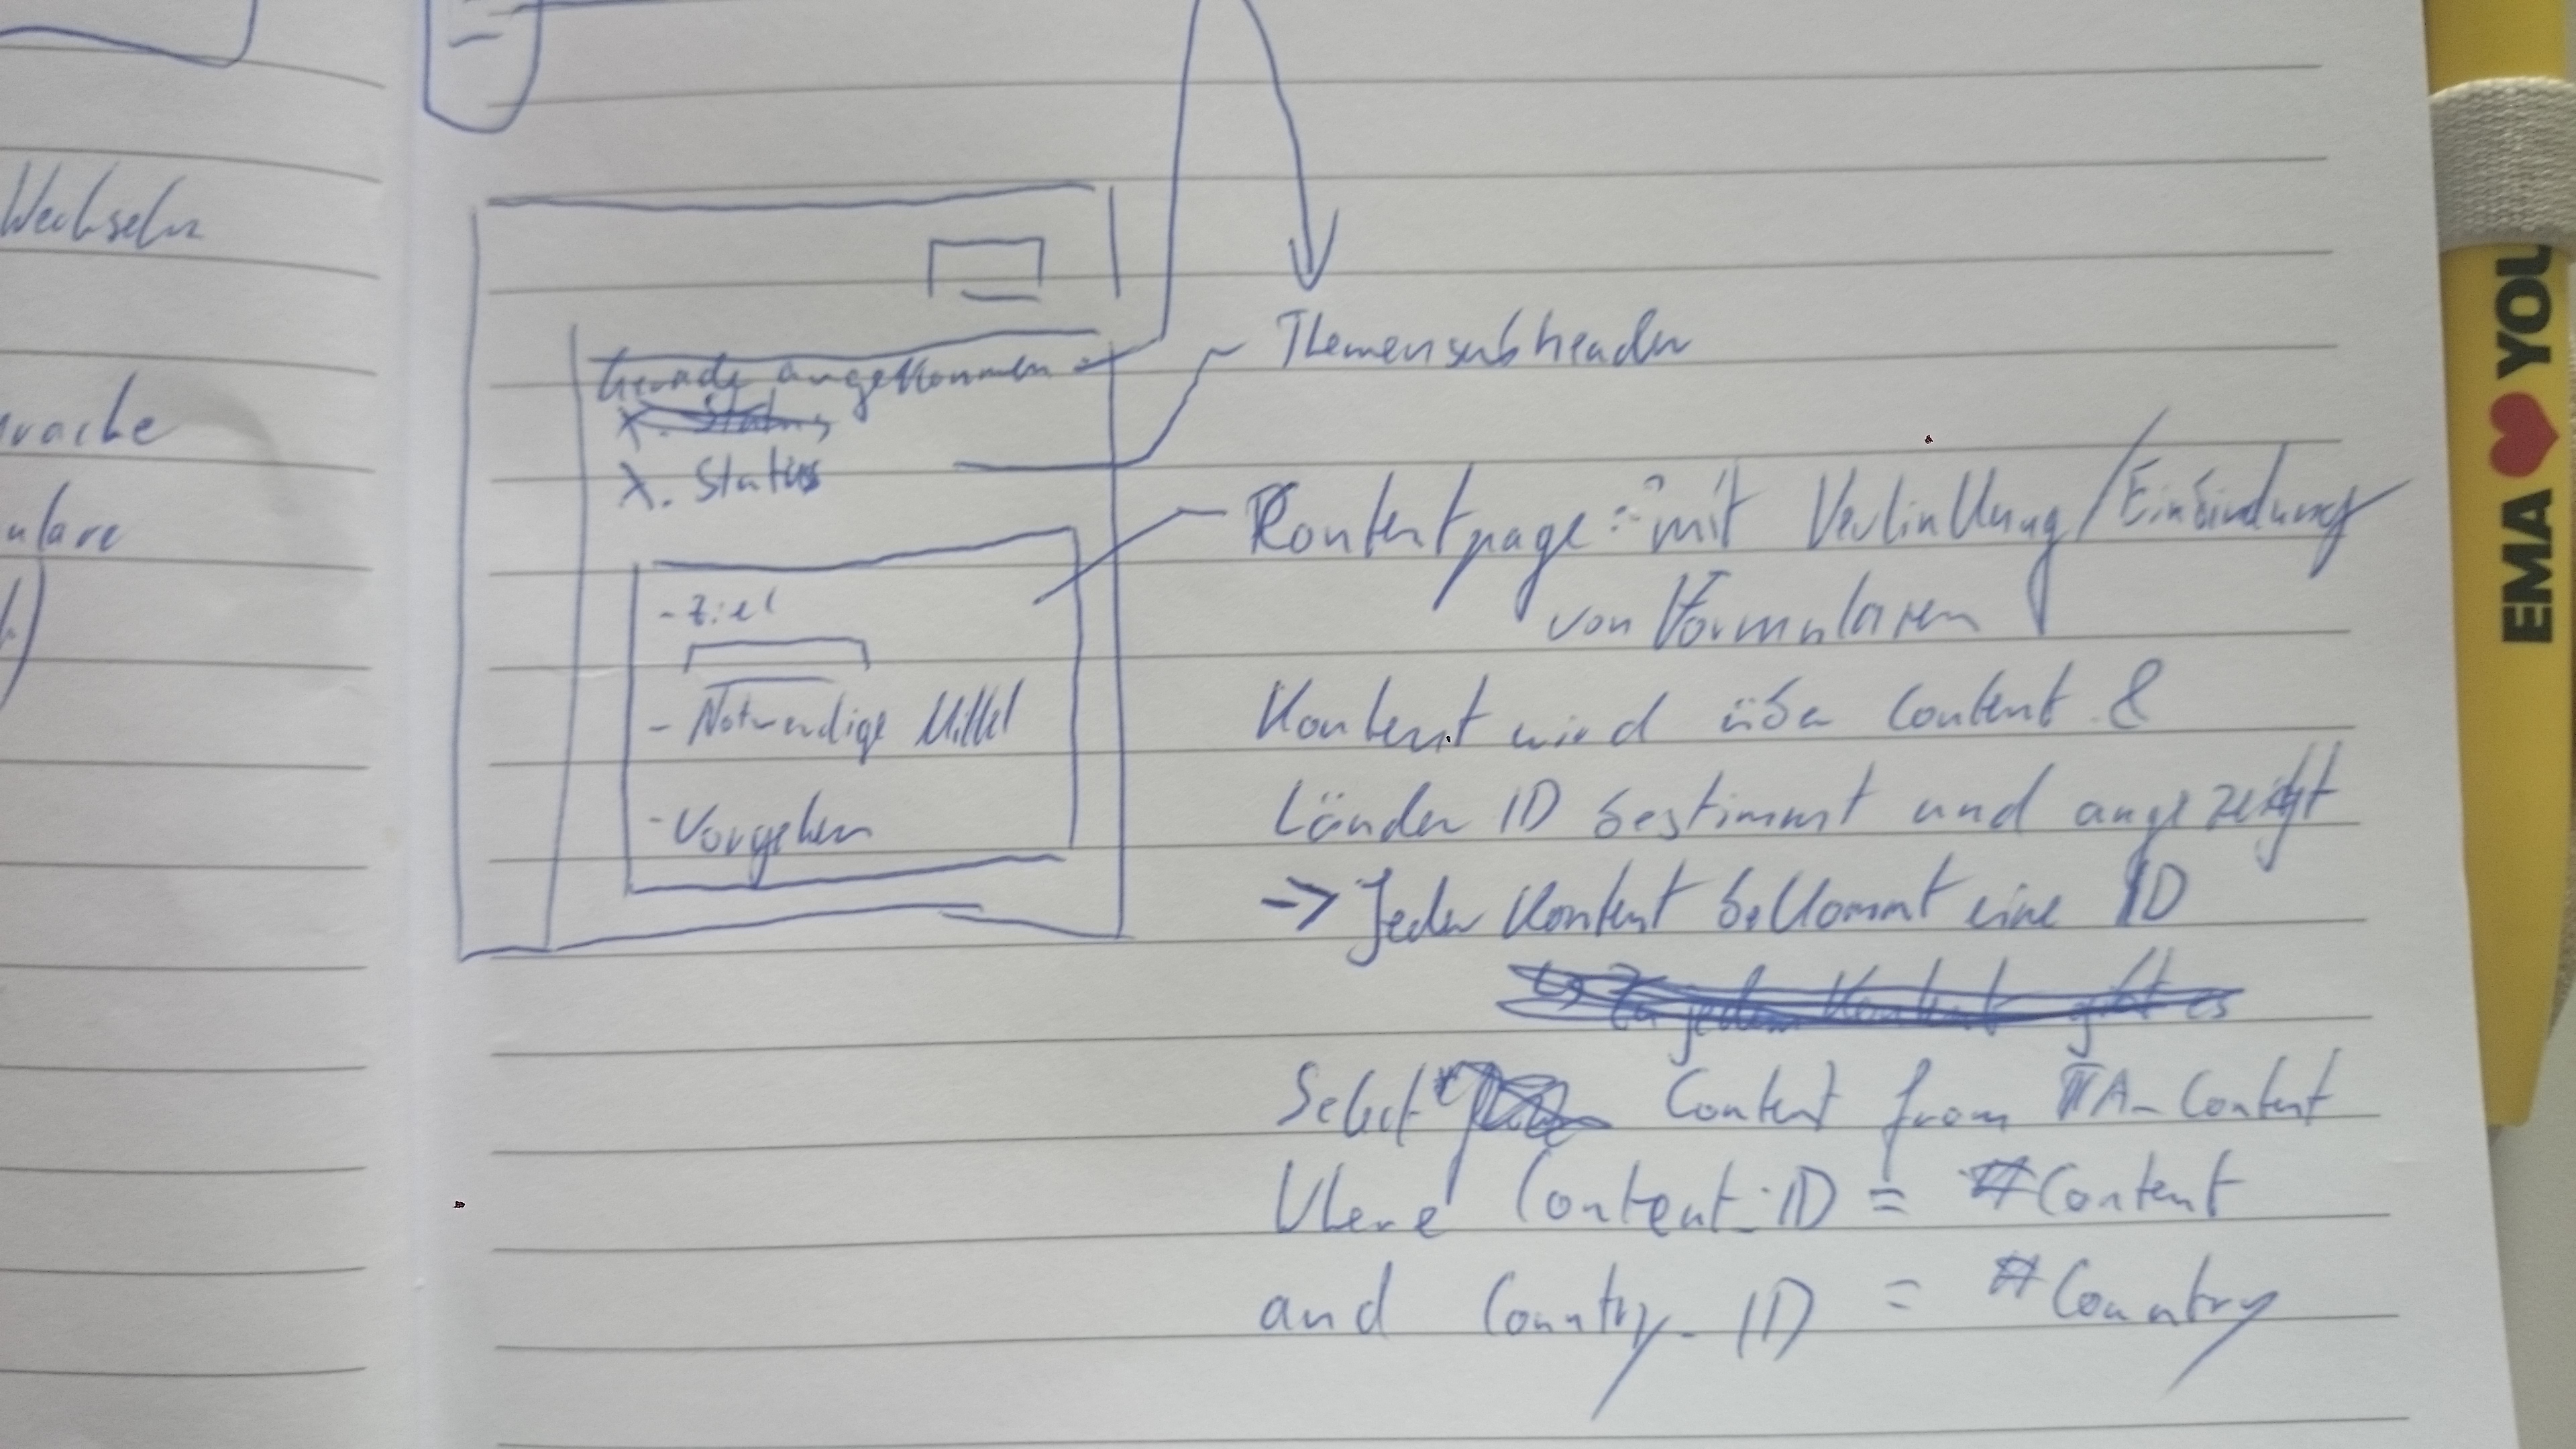 Wechseln
rache
ulare
Gerade angekommen
X. Status
X. Status
- Ziel
- Notwendige Mittel
- Vorgehen
Themensubheader
Kontentpage: mit Verlinkung/Einbindung
von Formularen
Kontent wird über Content &
Länder ID bestimmt und angezeigt
-> Jeder Kontent bekommt eine ID
↳ Zu jedem Kontent gibt es
Select Content from TA_Content
Where Content_ID = #Content
and Country_ID = #Country
EMA ♥ YOU